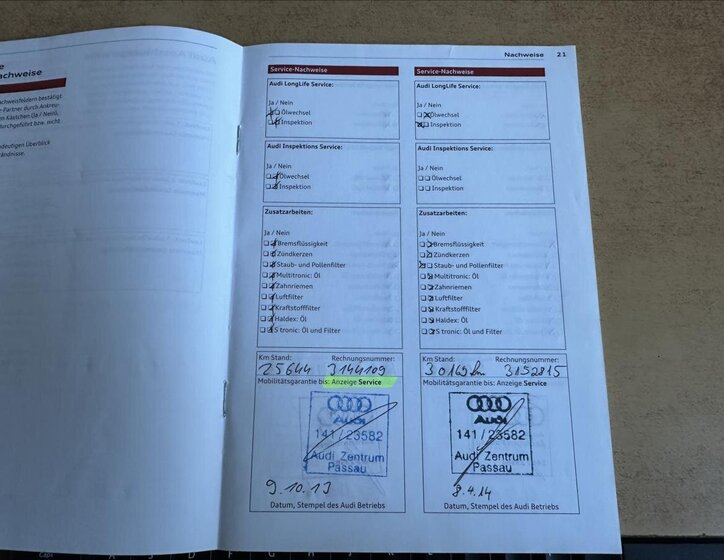 e
achweise
achweisfeldern bestätigt
-Partner durch Ankreu-
en Kästchen (Ja / Nein),
durchgeführt bzw. nicht
ndeutigen Überblick
tändnisse.
Nachweise 21
Service-Nachweise
Audi LongLife Service:
Ja / Nein
Ölwechsel
Inspektion
Audi Inspektions Service:
Ja / Nein
Ölwechsel
Inspektion
Zusatzarbeiten:
Ja / Nein
Bremsflüssigkeit
Zündkerzen
Staub- und Pollenfilter
Multitronic: Öl
Zahnriemen
Luftfilter
Kraftstofffilter
Haldex: Öl
S tronic: Öl und Filter
Km Stand: Rechnungsnummer:
25644 3144109
Mobilitätsgarantie bis: Anzeige Service
Audi
141 / 23582
Audi Zentrum
Passau
9.10.13
Datum, Stempel des Audi Betriebs
Service-Nachweise
Audi LongLife Service:
Ja / Nein
Ölwechsel
Inspektion
Audi Inspektions Service:
Ja / Nein
Ölwechsel
Inspektion
Zusatzarbeiten:
Ja / Nein
Bremsflüssigkeit
Zündkerzen
Staub- und Pollenfilter
Multitronic: Öl
Zahnriemen
Luftfilter
Kraftstofffilter
Haldex: Öl
S tronic: Öl und Filter
Km Stand: Rechnungsnummer:
30169 km 3152815
Mobilitätsgarantie bis: Anzeige Service
Audi
141 / 23582
Audi Zentrum
Passau
8.4.14
Datum, Stempel des Audi Betriebs